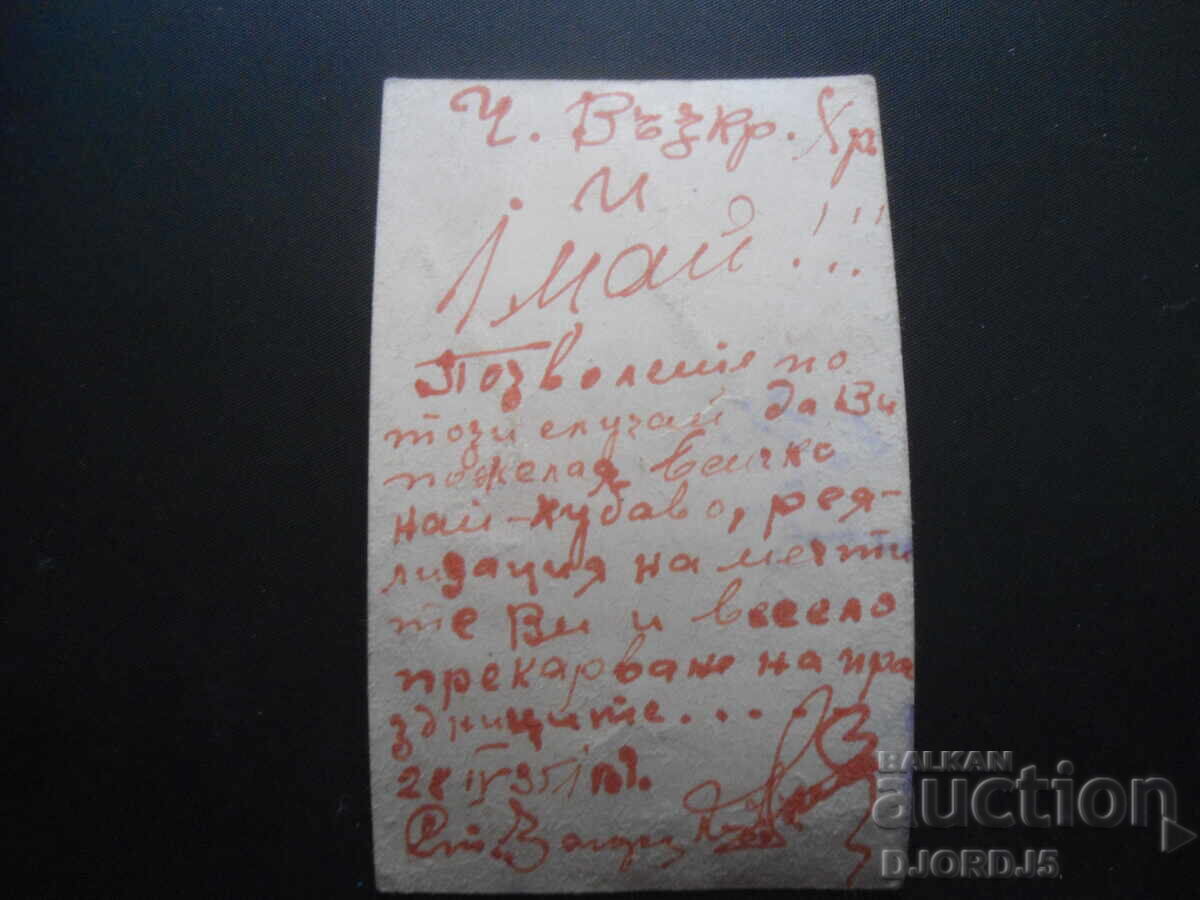 Ч. Възкр. Хр.
и
1 май!!!
Позволете по
този случай да Ви
пожелая всичко
най-хубаво, рея-
лизация на мечти
те Ви и весело
прекарване на пра
здниците...
28 IV 35
BALKAN
auction
DJORDJ5